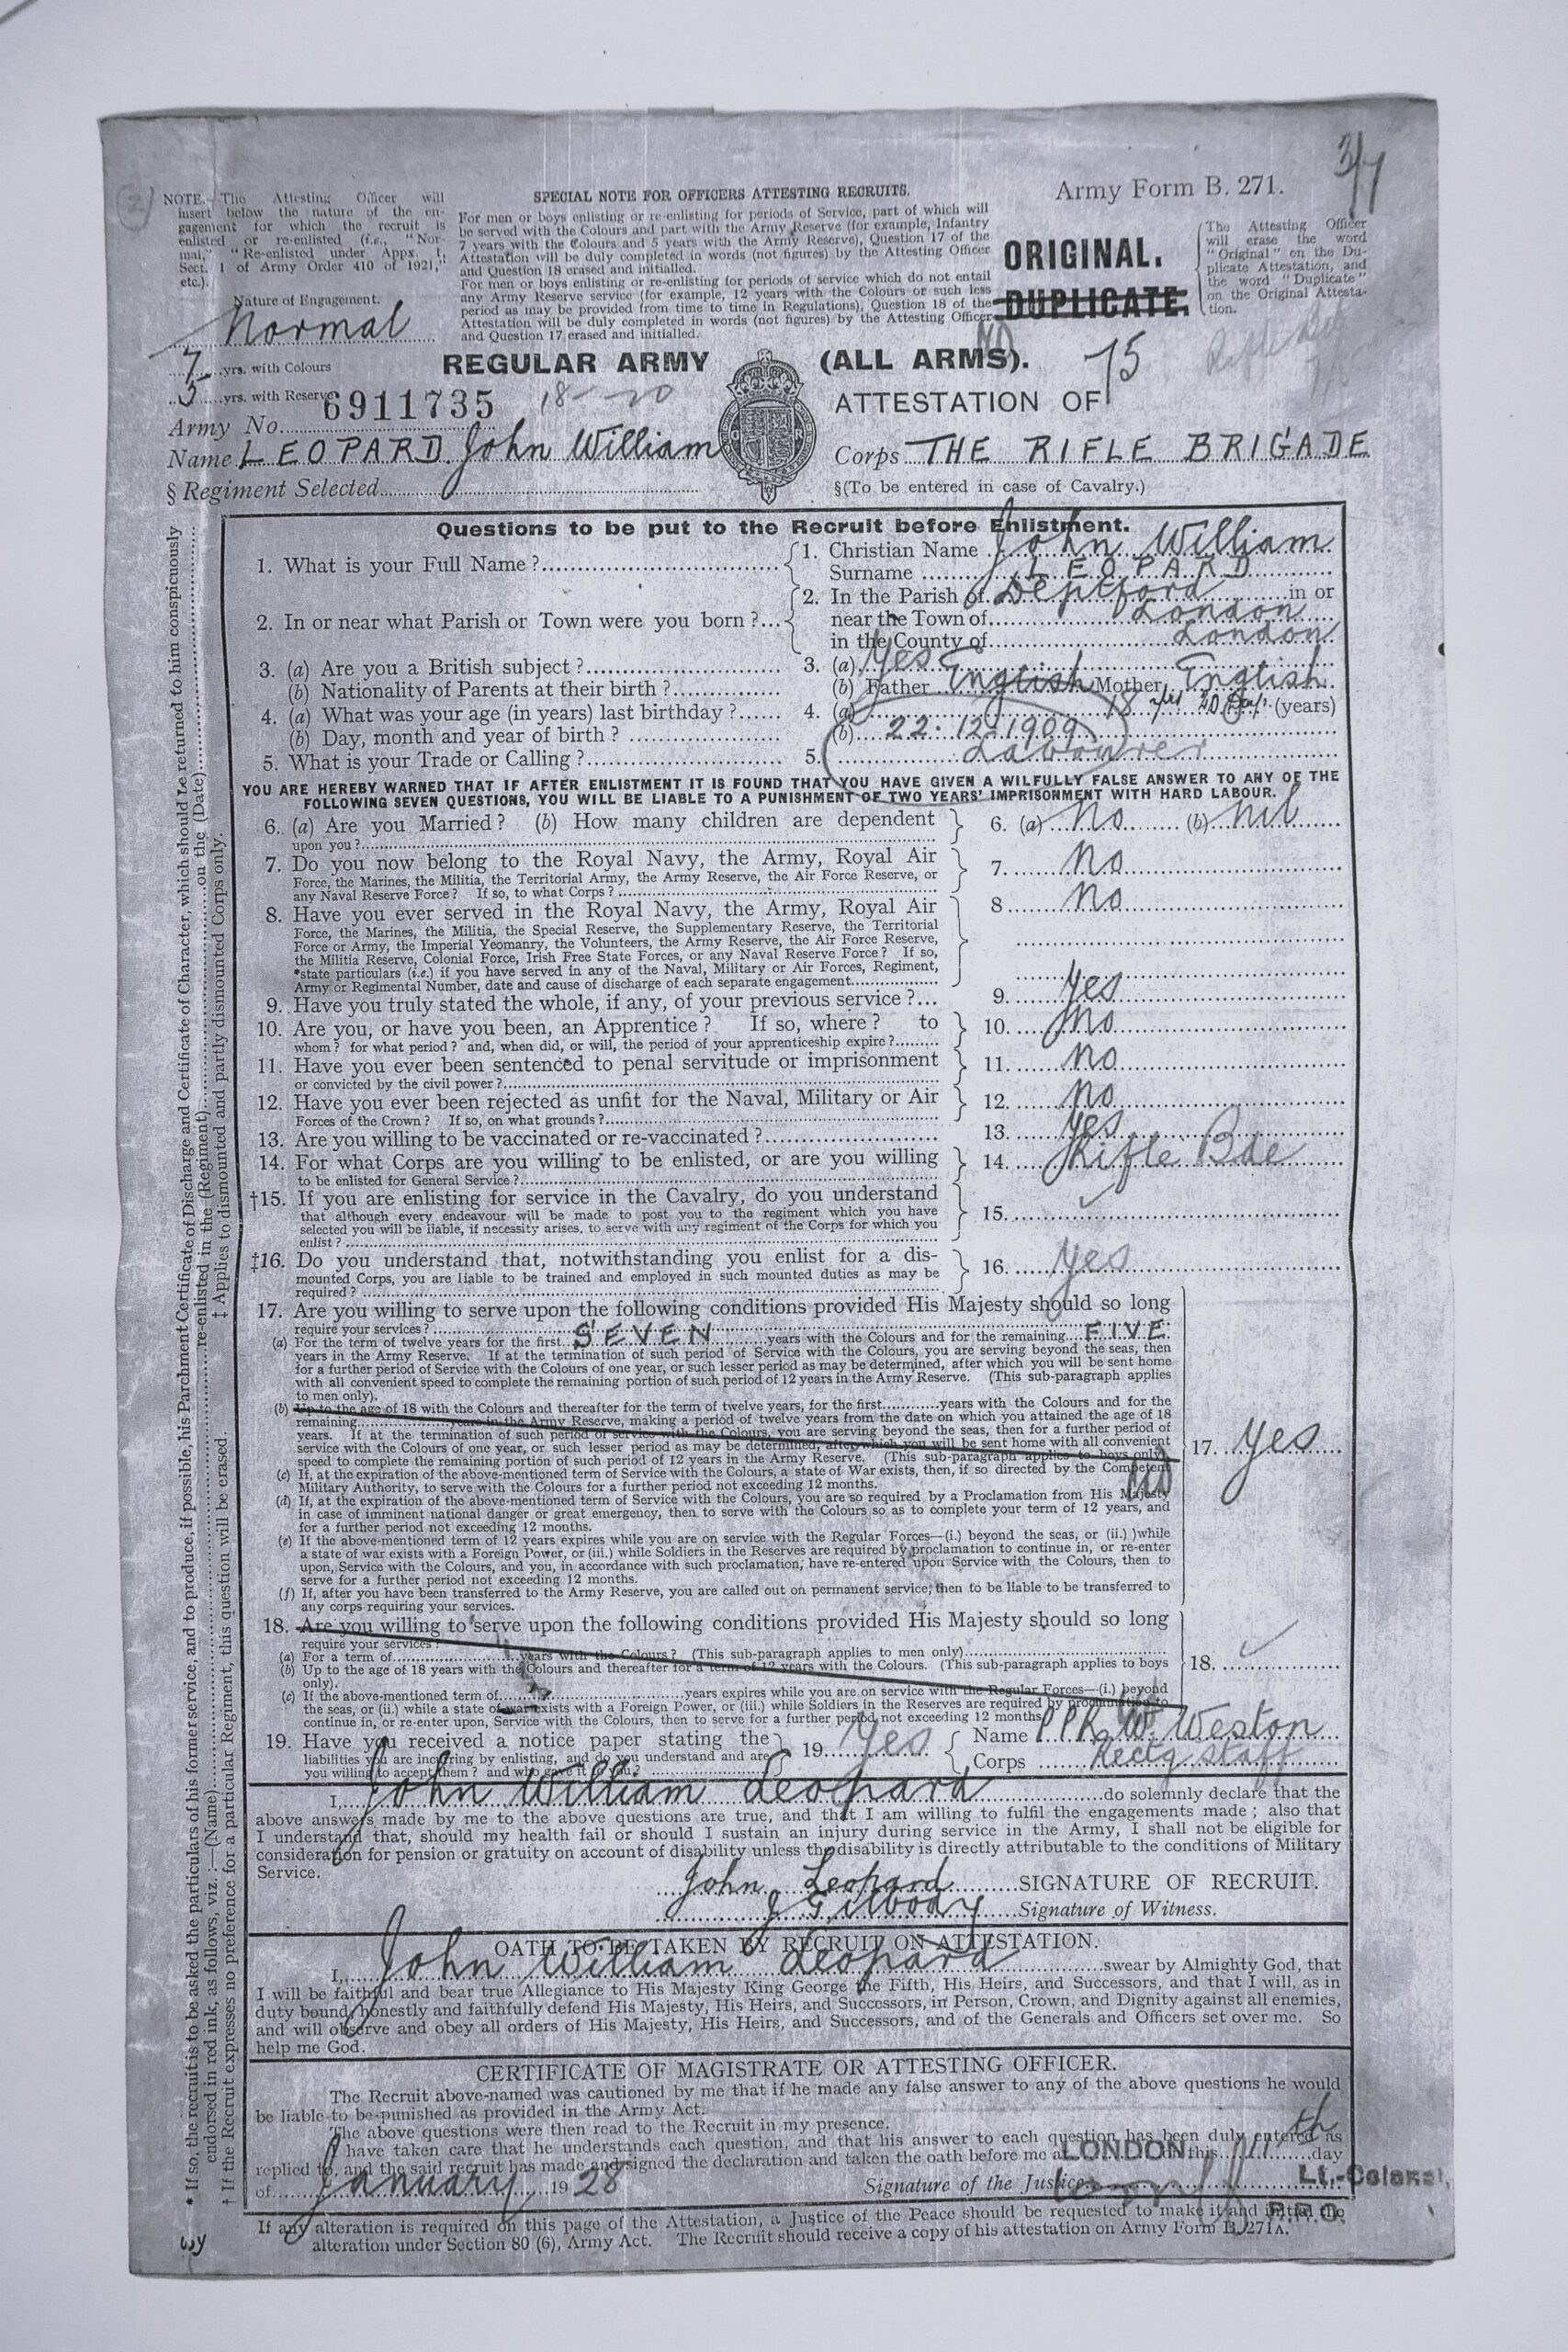 3/7
Army Form B. 271.
NOTE.—The Attesting Officer will
insert below the nature of the en-
gagement for which the recruit is
enlisted or re-enlisted (i.e., "Nor-
mal," "Re-enlisted under Appx. 1;
Sect. 1 of Army Order 410 of 1921,"
etc.).
Nature of Engagement.
Normal
7 yrs. with Colours
5 yrs. with Reserve
SPECIAL NOTE FOR OFFICERS ATTESTING RECRUITS.
For men or boys enlisting or re-enlisting for periods of Service, part of which will
be served with the Colours and part with the Army Reserve (for example, Infantry
7 years with the Colours and 5 years with the Army Reserve), Question 17 of the
Attestation will be duly completed in words (not figures) by the Attesting Officer
and Question 18 erased and initialled.
For men or boys enlisting or re-enlisting for periods of service which do not entail
any Army Reserve service (for example, 12 years with the Colours or such less
period as may be provided from time to time in Regulations), Question 18 of the
Attestation will be duly completed in words (not figures) by the Attesting Officer
and Question 17 erased and initialled.
ORIGINAL.
DUPLICATE.
The Attesting Officer
will erase the word
"Original" on the Du-
plicate Attestation, and
the word "Duplicate"
on the Original Attesta-
tion.
REGULAR ARMY (ALL ARMS).
75
Army No. 6911735
ATTESTATION OF
Name LEOPARD John William
Corps THE RIFLE BRIGADE
§ Regiment Selected
§(To be entered in case of Cavalry.)
Questions to be put to the Recruit before Enlistment.
1. What is your Full Name ? 1. Christian Name John William
Surname LEOPARD
2. In or near what Parish or Town were you born ? 2. In the Parish of Deptford in or
near the Town of London
in the County of London
3. (a) Are you a British subject ? 3. (a) Yes
(b) Nationality of Parents at their birth ? (b) Father English Mother English
4. (a) What was your age (in years) last birthday ? 4. (a) 18 yrs 20 Days (years)
(b) Day, month and year of birth ? (b) 22.12.1909
5. What is your Trade or Calling ? 5. Labourer
YOU ARE HEREBY WARNED THAT IF AFTER ENLISTMENT IT IS FOUND THAT YOU HAVE GIVEN A WILFULLY FALSE ANSWER TO ANY OF THE
FOLLOWING SEVEN QUESTIONS, YOU WILL BE LIABLE TO A PUNISHMENT OF TWO YEARS' IMPRISONMENT WITH HARD LABOUR.
6. (a) Are you Married ? (b) How many children are dependent 6. (a) No (b) nil
upon you ?
7. Do you now belong to the Royal Navy, the Army, Royal Air 7. No
Force, the Marines, the Militia, the Territorial Army, the Army Reserve, the Air Force Reserve, or
any Naval Reserve Force ? If so, to what Corps ?
8. Have you ever served in the Royal Navy, the Army, Royal Air 8. No
Force, the Marines, the Militia, the Special Reserve, the Supplementary Reserve, the Territorial
Force or Army, the Imperial Yeomanry, the Volunteers, the Army Reserve, the Air Force Reserve,
the Militia Reserve, Colonial Force, Irish Free State Forces, or any Naval Reserve Force ? If so,
*state particulars (i.e.) if you have served in any of the Naval, Military or Air Forces, Regiment,
Army or Regimental Number, date and cause of discharge of each separate engagement.
9. Have you truly stated the whole, if any, of your previous service ? 9. Yes
10. Are you, or have you been, an Apprentice ? If so, where ? to 10. No
whom ? for what period ? and, when did, or will, the period of your apprenticeship expire ?
11. Have you ever been sentenced to penal servitude or imprisonment 11. No
or convicted by the civil power ?
12. Have you ever been rejected as unfit for the Naval, Military or Air 12. No
Forces of the Crown ? If so, on what grounds ?
13. Are you willing to be vaccinated or re-vaccinated ? 13. Yes
14. For what Corps are you willing to be enlisted, or are you willing 14. Rifle Bde
to be enlisted for General Service ?
†15. If you are enlisting for service in the Cavalry, do you understand 15.
that although every endeavour will be made to post you to the regiment which you have
selected you will be liable, if necessity arises, to serve with any regiment of the Corps for which you
enlist ?
‡16. Do you understand that, notwithstanding you enlist for a dis- 16. Yes
mounted Corps, you are liable to be trained and employed in such mounted duties as may be
required ?
17. Are you willing to serve upon the following conditions provided His Majesty should so long
require your services ?
(a) For the term of twelve years for the first SEVEN years with the Colours and for the remaining FIVE
years in the Army Reserve. If at the termination of such period of Service with the Colours, you are serving beyond the seas, then
for a further period of Service with the Colours of one year, or such lesser period as may be determined, after which you will be sent home
with all convenient speed to complete the remaining portion of such period of 12 years in the Army Reserve. (This sub-paragraph applies
to men only).
(b) Up to the age of 18 with the Colours and thereafter for the term of twelve years, for the first years with the Colours and for the
remaining years in the Army Reserve, making a period of twelve years from the date on which you attained the age of 18
years. If at the termination of such period of service with the Colours, you are serving beyond the seas, then for a further period of
service with the Colours of one year, or such lesser period as may be determined, after which you will be sent home with all convenient
speed to complete the remaining portion of such period of 12 years in the Army Reserve. (This sub-paragraph applies to boys only)
17. Yes
(c) If, at the expiration of the above-mentioned term of Service with the Colours, a state of War exists, then, if so directed by the Competent
Military Authority, to serve with the Colours for a further period not exceeding 12 months.
(d) If, at the expiration of the above-mentioned term of Service with the Colours, you are so required by a Proclamation from His Majesty
in case of imminent national danger or great emergency, then to serve with the Colours so as to complete your term of 12 years, and
for a further period not exceeding 12 months.
(e) If the above-mentioned term of 12 years expires while you are on service with the Regular Forces—(i.) beyond the seas, or (ii.) while
a state of war exists with a Foreign Power, or (iii.) while Soldiers in the Reserves are required by proclamation to continue in, or re-enter
upon, Service with the Colours, and you, in accordance with such proclamation, have re-entered upon Service with the Colours, then to
serve for a further period not exceeding 12 months.
(f) If, after you have been transferred to the Army Reserve, you are called out on permanent service, then to be liable to be transferred to
any corps requiring your services.
18. Are you willing to serve upon the following conditions provided His Majesty should so long
require your services ?
(a) For a term of years with the Colours ? (This sub-paragraph applies to men only)
(b) Up to the age of 18 years with the Colours and thereafter for a term of 12 years with the Colours. (This sub-paragraph applies to boys 18.
only).
(c) If the above-mentioned term of years expires while you are on service with the Regular Forces—(i.) beyond
the seas, or (ii.) while a state of war exists with a Foreign Power, or (iii.) while Soldiers in the Reserves are required by proclamation to
continue in, or re-enter upon, Service with the Colours, then to serve for a further period not exceeding 12 months.
19. Have you received a notice paper stating the 19. Yes Name W. Weston
liabilities you are incurring by enlisting, and do you understand and are Corps Rectg Staff
you willing to accept them ? and who gave it to you ?
I, John William Leopard do solemnly declare that the
above answers made by me to the above questions are true, and that I am willing to fulfil the engagements made ; also that
I understand that, should my health fail or should I sustain an injury during service in the Army, I shall not be eligible for
consideration for pension or gratuity on account of disability unless the disability is directly attributable to the conditions of Military
Service.
John Leopard SIGNATURE OF RECRUIT.
J Gilbody Signature of Witness.
OATH TO BE TAKEN BY RECRUIT ON ATTESTATION.
I, John William Leopard swear by Almighty God, that
I will be faithful and bear true Allegiance to His Majesty King George the Fifth, His Heirs, and Successors, and that I will, as in
duty bound, honestly and faithfully defend His Majesty, His Heirs, and Successors, in Person, Crown, and Dignity against all enemies,
and will observe and obey all orders of His Majesty, His Heirs, and Successors, and of the Generals and Officers set over me. So
help me God.
CERTIFICATE OF MAGISTRATE OR ATTESTING OFFICER.
The Recruit above-named was cautioned by me that if he made any false answer to any of the above questions he would
be liable to be punished as provided in the Army Act.
The above questions were then read to the Recruit in my presence.
I have taken care that he understands each question, and that his answer to each question has been duly entered as
replied to, and the said recruit has made and signed the declaration and taken the oath before me at LONDON this 11th day
of January 1928 Signature of the Justice Lt.-Colonel,
If any alteration is required on this page of the Attestation, a Justice of the Peace should be requested to make it and initial the
alteration under Section 80 (6), Army Act. The Recruit should receive a copy of his attestation on Army Form B. 271A.
* If so, the recruit is to be asked the particulars of his former service, and to produce, if possible, his Parchment Certificate of Discharge and Certificate of Character, which should be returned to him conspicuously
endorsed in red ink, as follows, viz. :—(Name) re-enlisted in the (Regiment) on the (Date)
† If the Recruit expresses no preference for a particular Regiment, this question will be erased. ‡ Applies to dismounted and partly dismounted Corps only.